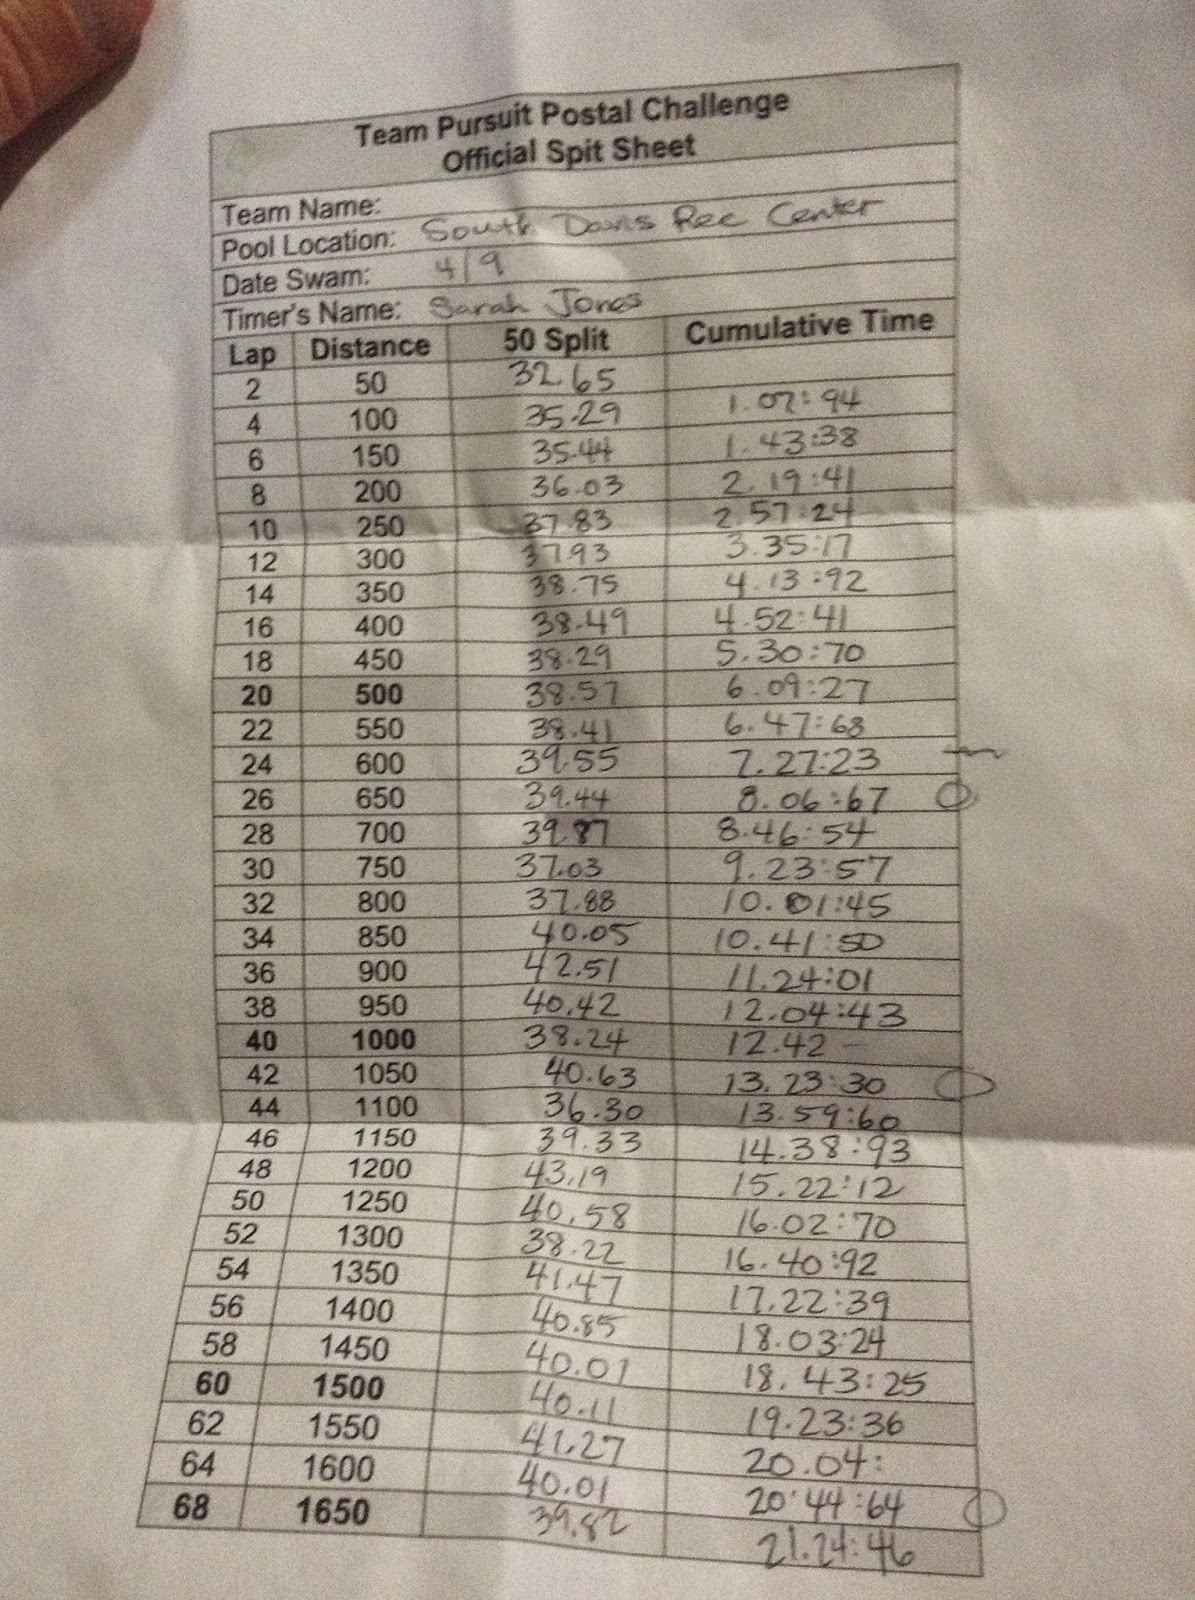 Team Pursuit Postal Challenge
Official Spit Sheet
Team Name:
Pool Location: South Davis Rec Center
Date Swam: 4/9
Timer's Name: Sarah Jones
Lap Distance 50 Split Cumulative Time
2 50 32.65
4 100 35.29 1.07:94
6 150 35.44 1.43:38
8 200 36.03 2.19:41
10 250 37.83 2.57:24
12 300 37.93 3.35:17
14 350 38.75 4.13:92
16 400 38.49 4.52:41
18 450 38.29 5.30:70
20 500 38.57 6.09:27
22 550 38.41 6.47:68
24 600 39.55 7.27:23
26 650 39.44 8.06:67
28 700 39.87 8.46:54
30 750 37.03 9.23:57
32 800 37.88 10.01:45
34 850 40.05 10.41:50
36 900 42.51 11.24:01
38 950 40.42 12.04:43
40 1000 38.24 12.42 -
42 1050 40.63 13.23:30
44 1100 36.30 13.59:60
46 1150 39.33 14.38:93
48 1200 43.19 15.22:12
50 1250 40.58 16.02:70
52 1300 38.22 16.40:92
54 1350 41.47 17.22:39
56 1400 40.85 18.03:24
58 1450 40.01 18.43:25
60 1500 40.11 19.23:36
62 1550 41.27 20.04:
64 1600 40.01 20.44:64
68 1650 39.82 21.24:46